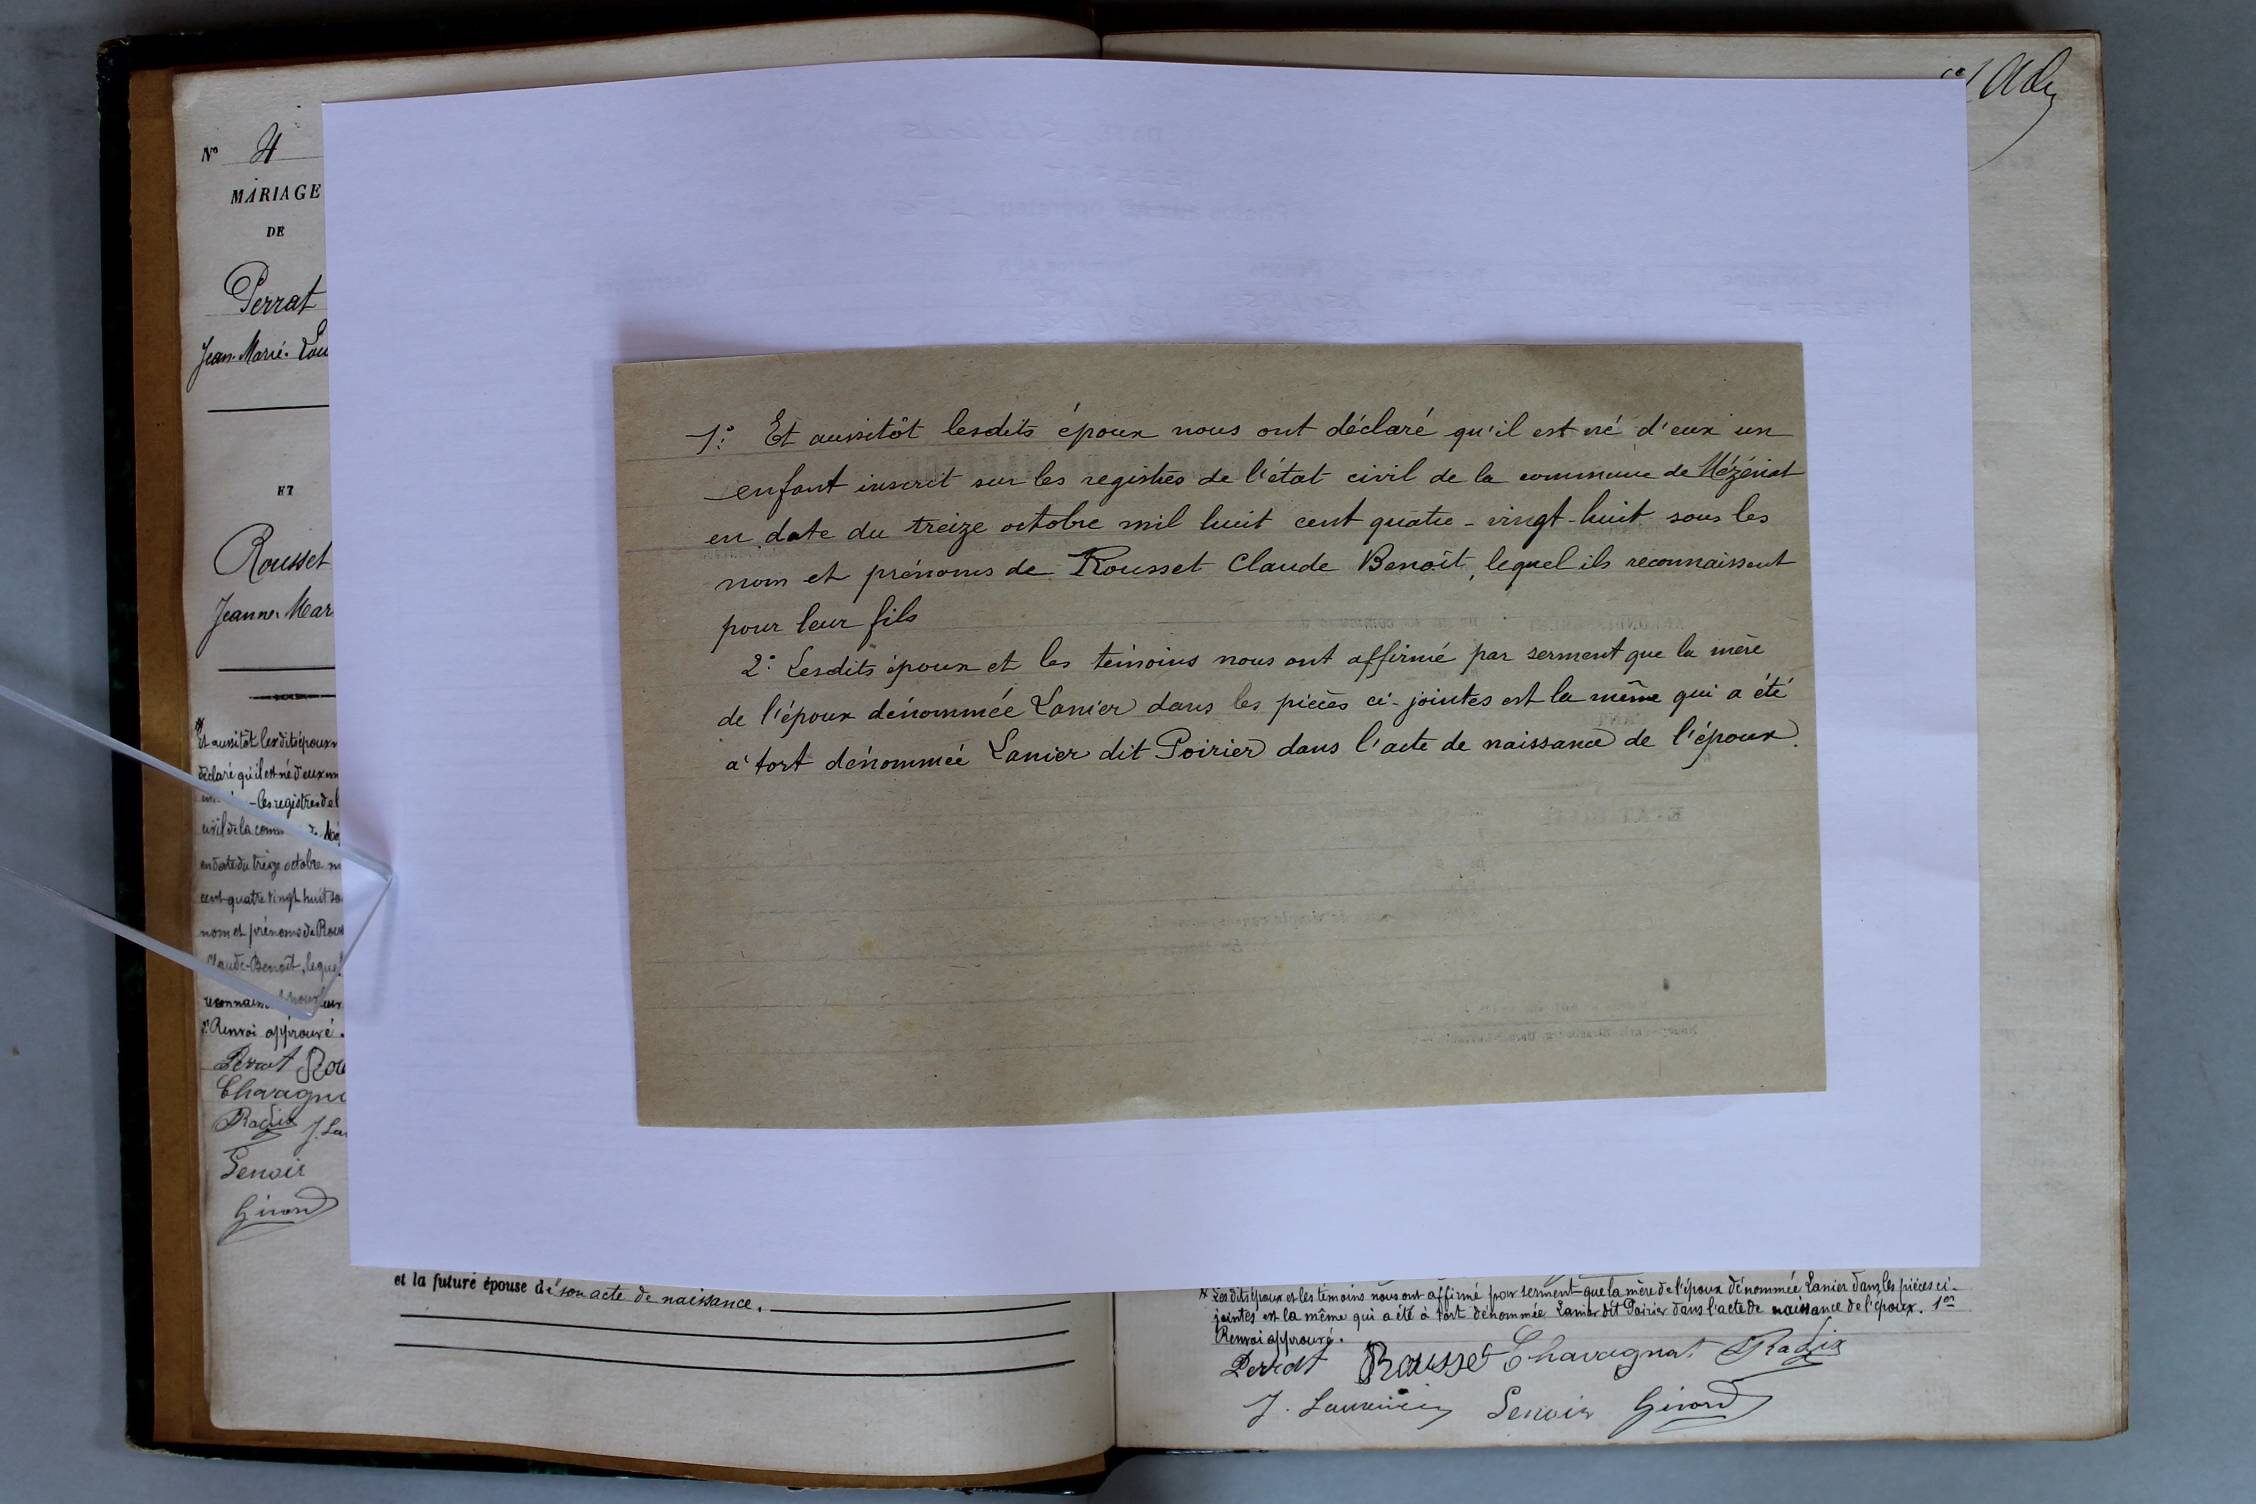 Nº 4
MARIAGE
DE
Perrat
Jean-Marie-
ET
Rousset
Jeanne-
Et aussitôt lesdits époux
déclaré qu'il est né d'eux
les registres de l
civil de la
en date du treize octobre
cent quatre vingt huit
nom et prénoms de
Claude-Benoît,
Renvoi approuvé.
Perrat
Radix
Lenoir
Girard
et la future épouse de son acte de naissance.
1º Et aussitôt lesdits époux nous ont déclaré qu'il est né d'eux un
enfant inscrit sur les registres de l'état civil de la commune de Mézériat
en date du treize octobre mil huit cent quatre-vingt-huit sous les
nom et prénoms de Rousset Claude Benoît, lequel ils reconnaissent
pour leur fils
2º Lesdits époux et les témoins nous ont affirmé par serment que la mère
de l'époux dénommée Lanier dans les pièces ci-jointes est la même qui a été
à tort dénommée Lanier dit Poirier dans l'acte de naissance de l'époux.
Lesdits époux et les témoins nous ont affirmé par serment que la mère de l'époux dénommée Lanier dans les pièces ci-
jointes est la même qui a été à tort dénommée Lanier dit Poirier dans l'acte de naissance de l'époux. 1er
Renvoi approuvé.
Perrat Rousset Chavagnat Radix
J. Laurencin Lenoir Girard